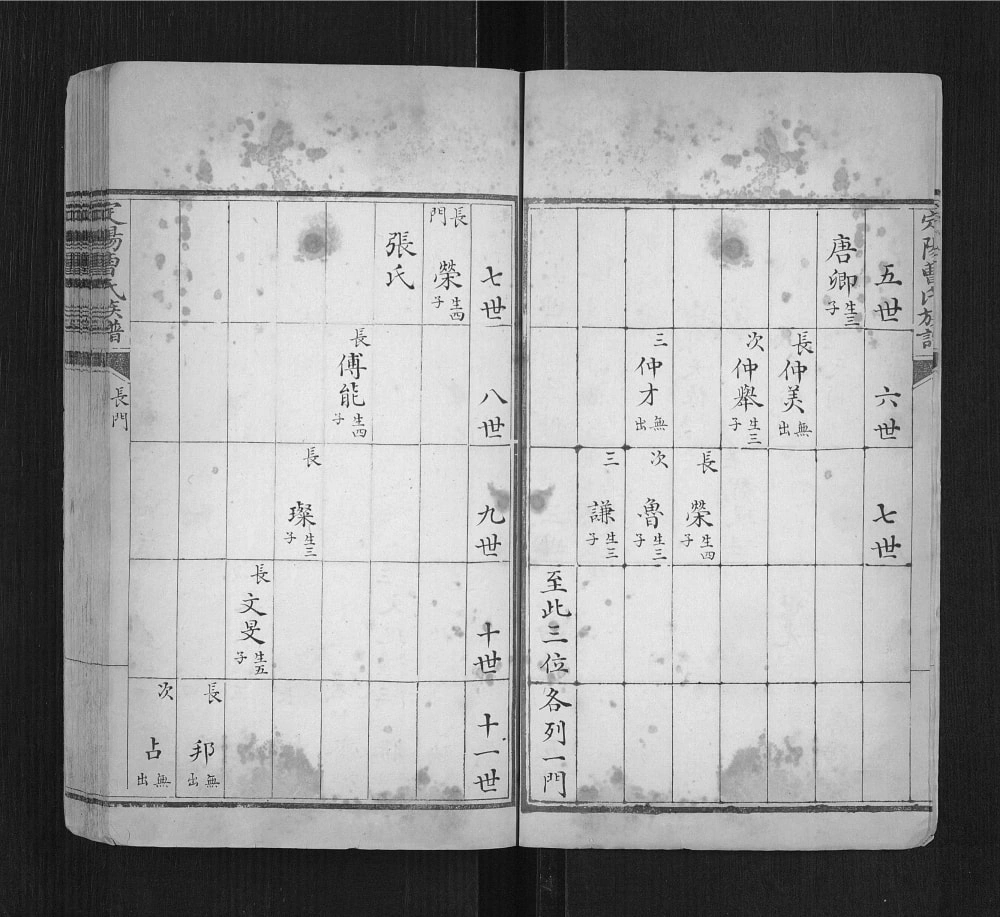 定陽曹氏族譜
五世
唐卿 生三子
六世
長 仲美 無出
次 仲舉 生三子
三 仲才 無出
七世
長 榮 生四子
次 魯 生三子
三 謙 生三子
至此三位各列一門
七世
長門 榮 生四子
張氏
八世
長 傅能 生四子
九世
長 璨 生三子
十世
長 文旻 生五子
十一世
長 邦 無出
次 占 無出
定陽曹氏族譜
長門